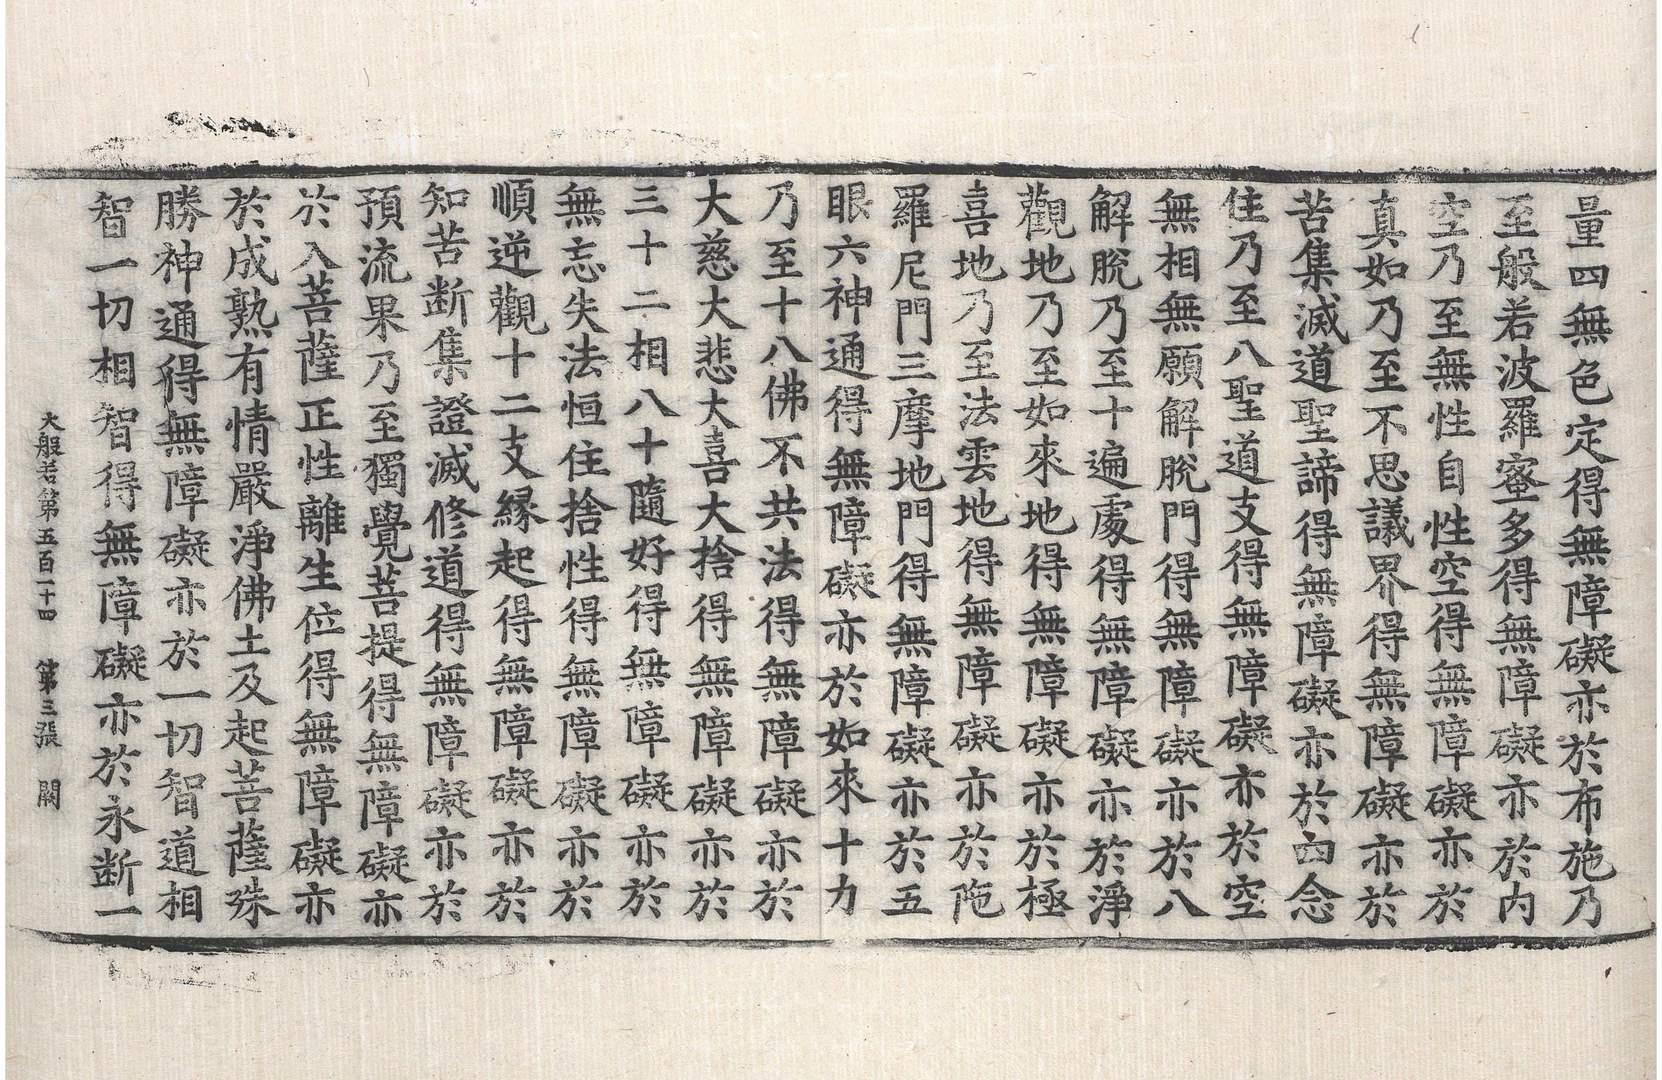 量四無色定得無障礙亦於布施乃
至般若波羅蜜多得無障礙亦於內
空乃至無性自性空得無障礙亦於
真如乃至不思議界得無障礙亦於
苦集滅道聖諦得無障礙亦於四念
住乃至八聖道支得無障礙亦於空
無相無願解脫門得無障礙亦於八
解脫乃至十遍處得無障礙亦於淨
觀地乃至如來地得無障礙亦於極
喜地乃至法雲地得無障礙亦於陁
羅尼門三摩地門得無障礙亦於五
眼六神通得無障礙亦於如來十力
乃至十八佛不共法得無障礙亦於
大慈大悲大喜大捨得無障礙亦於
三十二相八十隨好得無障礙亦於
無忘失法恒住捨性得無障礙亦於
順逆觀十二支緣起得無障礙亦於
知苦斷集證滅修道得無障礙亦於
預流果乃至獨覺菩提得無障礙亦
於入菩薩正性離生位得無障礙亦
於成熟有情嚴淨佛土及起菩薩殊
勝神通得無障礙亦於一切智道相
智一切相智得無障礙亦於永斷一
大般若第五百一十四 第三張 闕